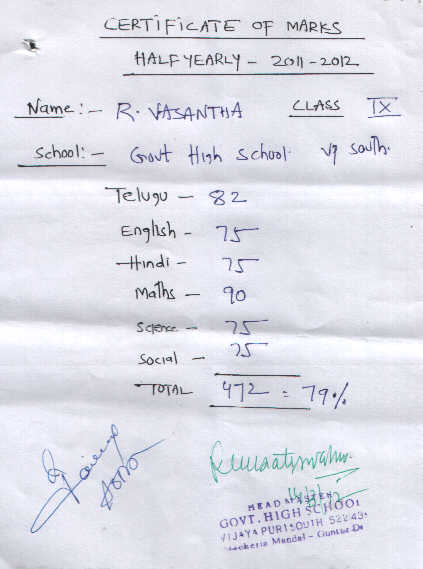 CERTIFICATE OF MARKS
HALF YEARLY - 2011-2012
Name:- R. VASANTHA CLASS IX
School:- Govt High School. VP South.
Telugu - 82
English - 75
Hindi - 75
Maths - 90
Science - 75
Social - 75
TOTAL 472 = 79%
HEAD MASTER
GOVT. HIGH SCHOOL
VIJAYA PURI SOUTH
Mandal - Guntur